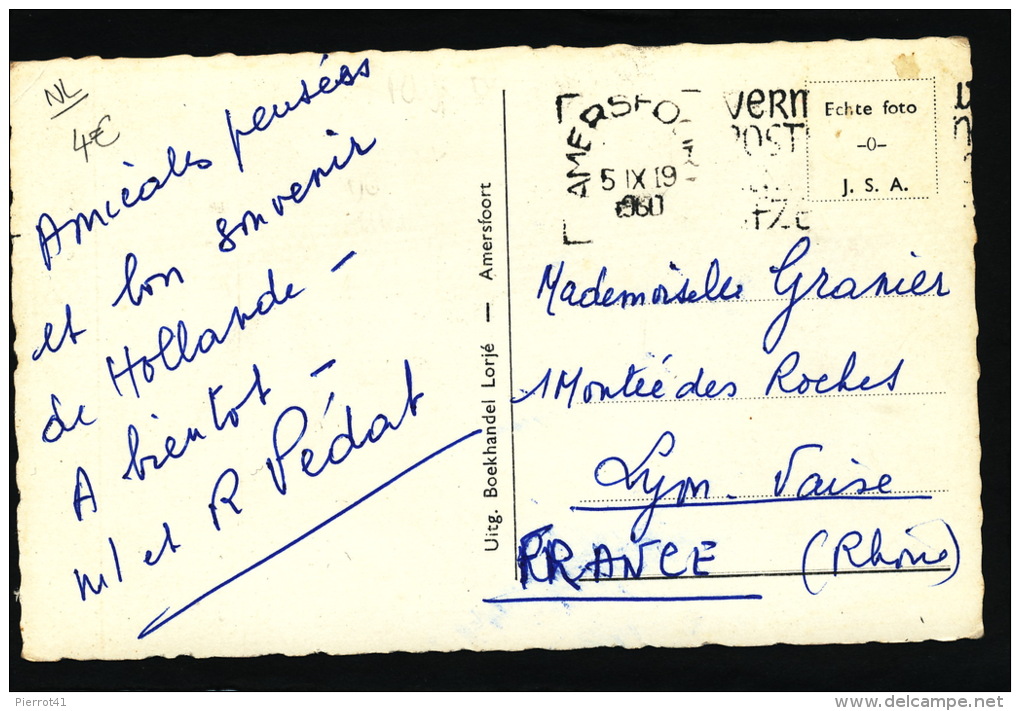 NL
4€
Amicales pensées
et bon souvenir
de Hollande -
A bientot -
et R Pédat
Uitg. Boekhandel Lorjé — Amersfoort
AMERSFOORT
5 IX 19
1960
VERM
POST
Echte foto
-0-
J. S. A.
Mademoiselle Granier
1 Montée des Roches
Lyon - Vaise
FRANCE (Rhône)
Pierrot41
www.delcampe.net